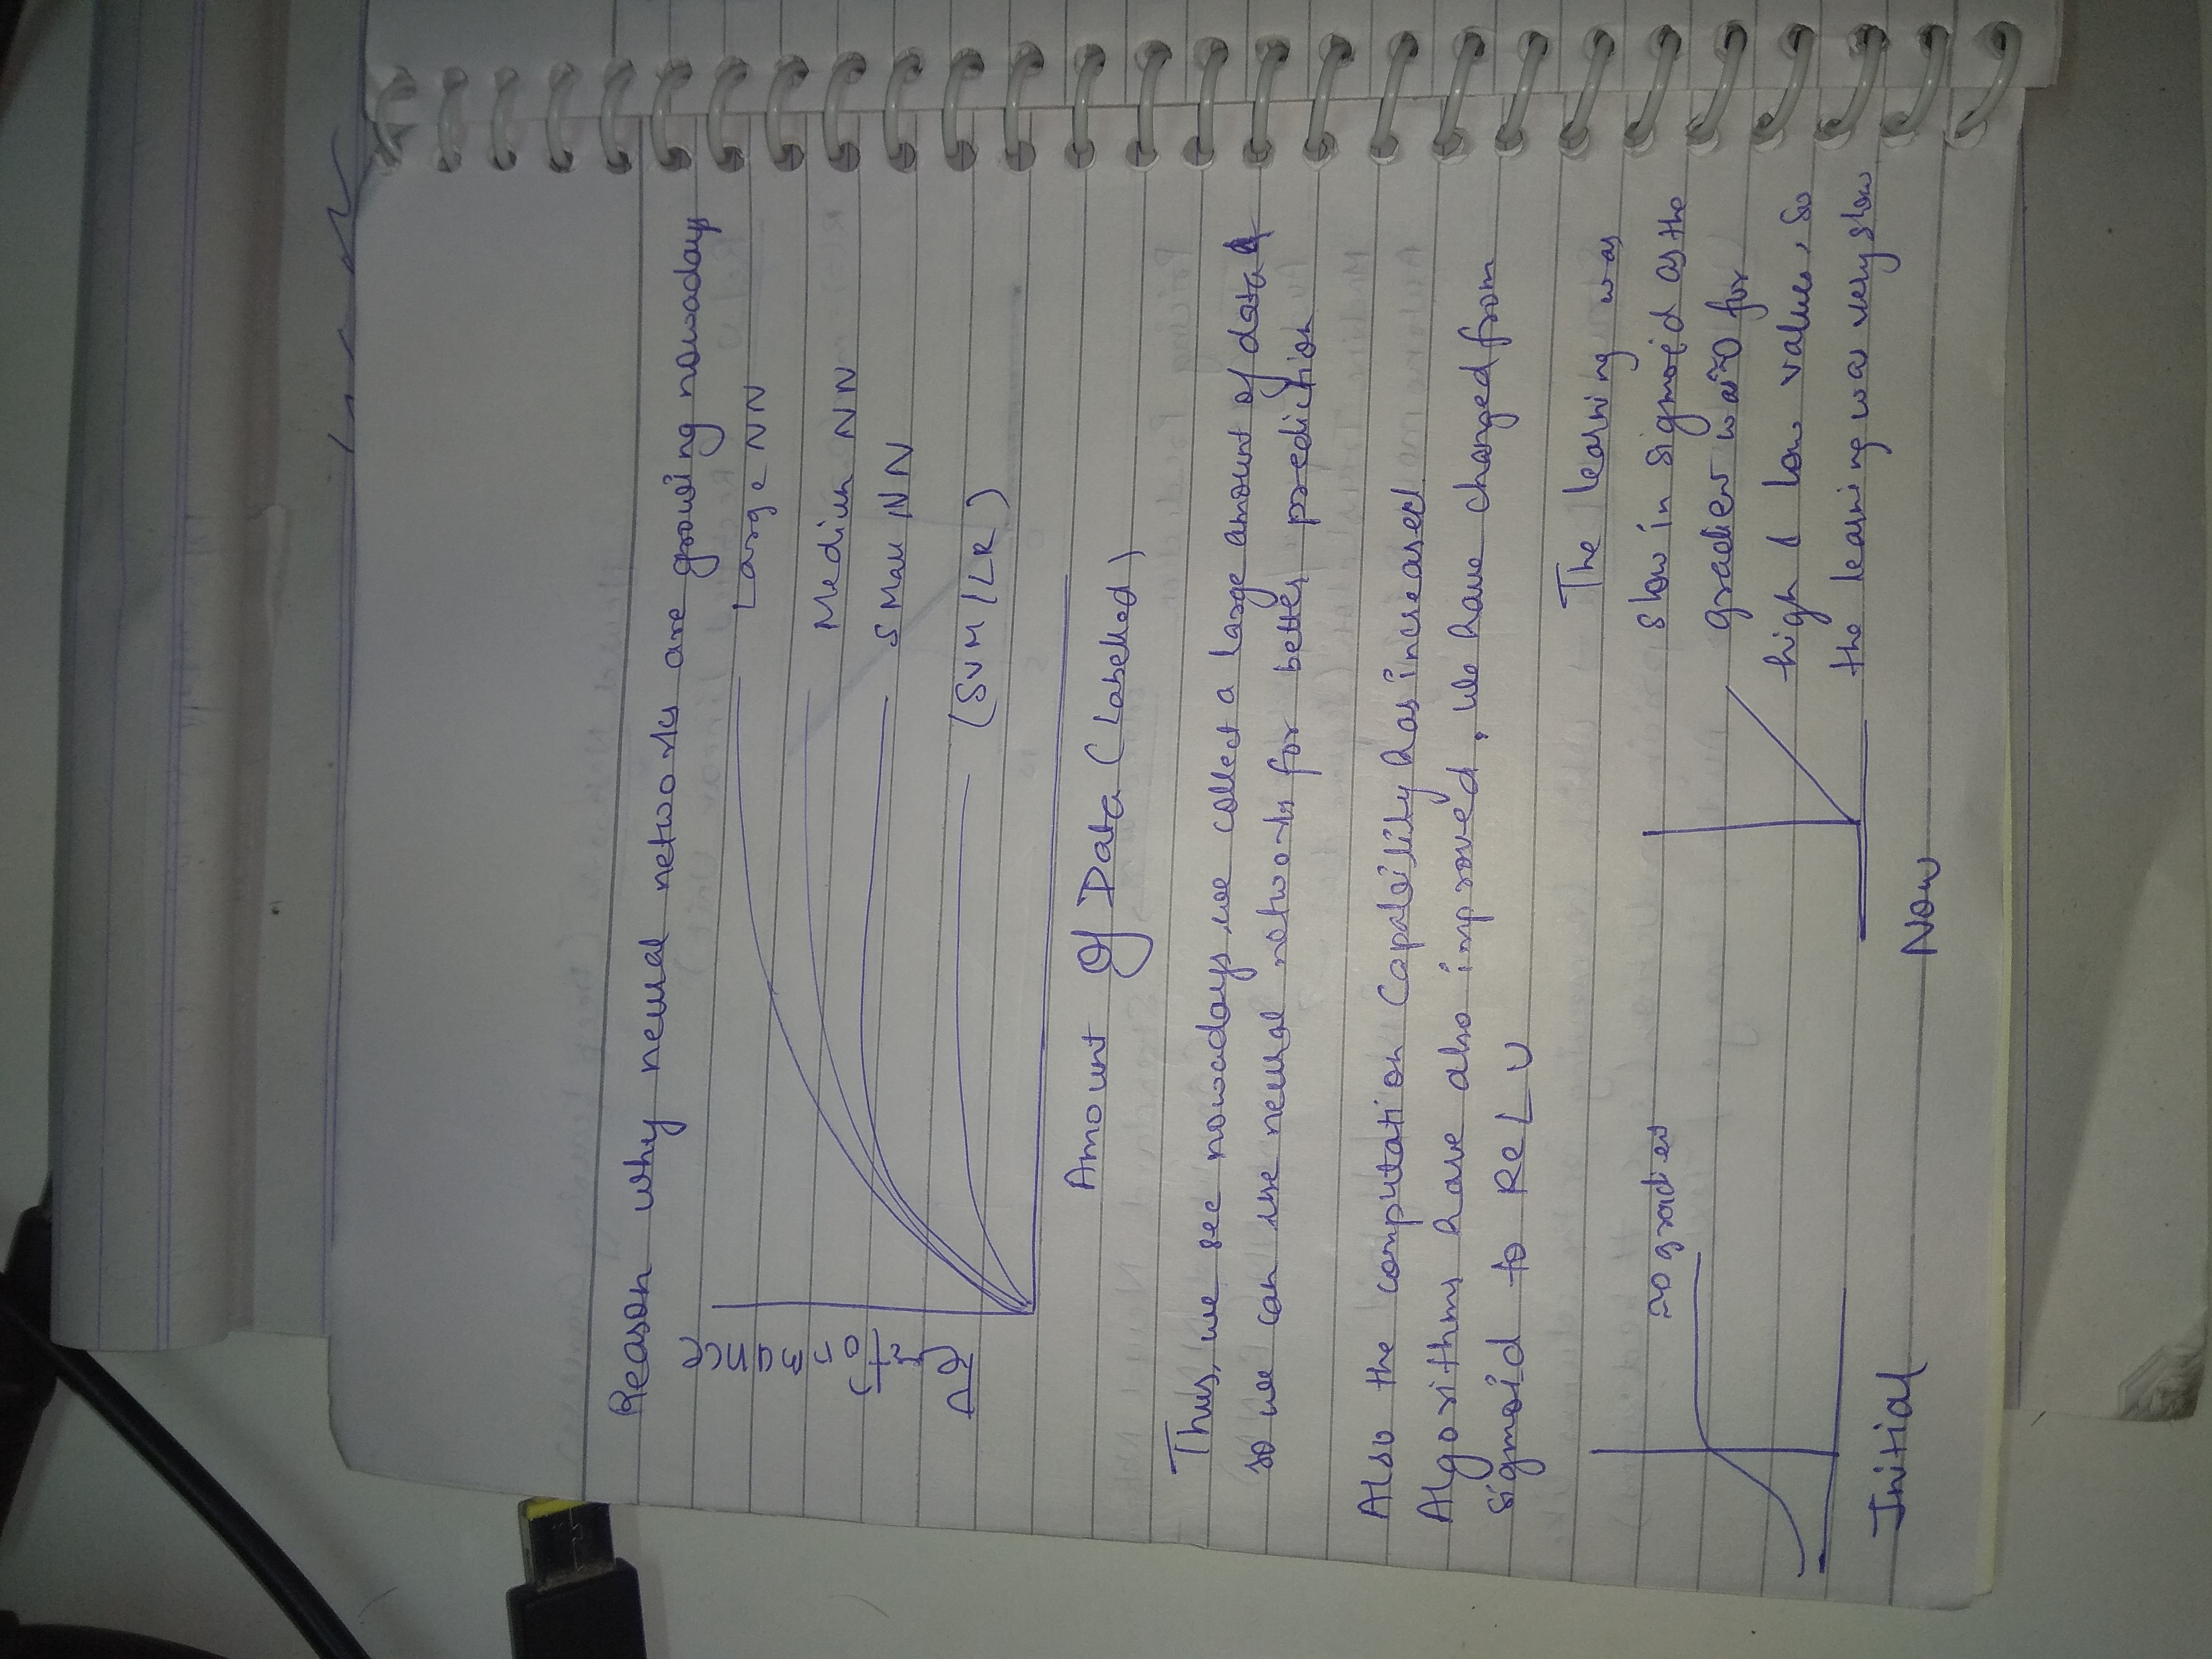 Reason why neural networks are growing nowadays
Large NN
Medium NN
Small NN
(SVM/LR)
Amount Of Data (Labelled)
Thus, we see nowadays we collect a large amount of data
so we can use neural networks for better prediction
Also the computation Capability has increased
Algorithms have also improved, we have changed from
sigmoid to ReLU
≈0 gradient
The learning was
slow in sigmoid as the
gradient was ≈0 for
high & low values, so
the learning was very slow
Initial
Now